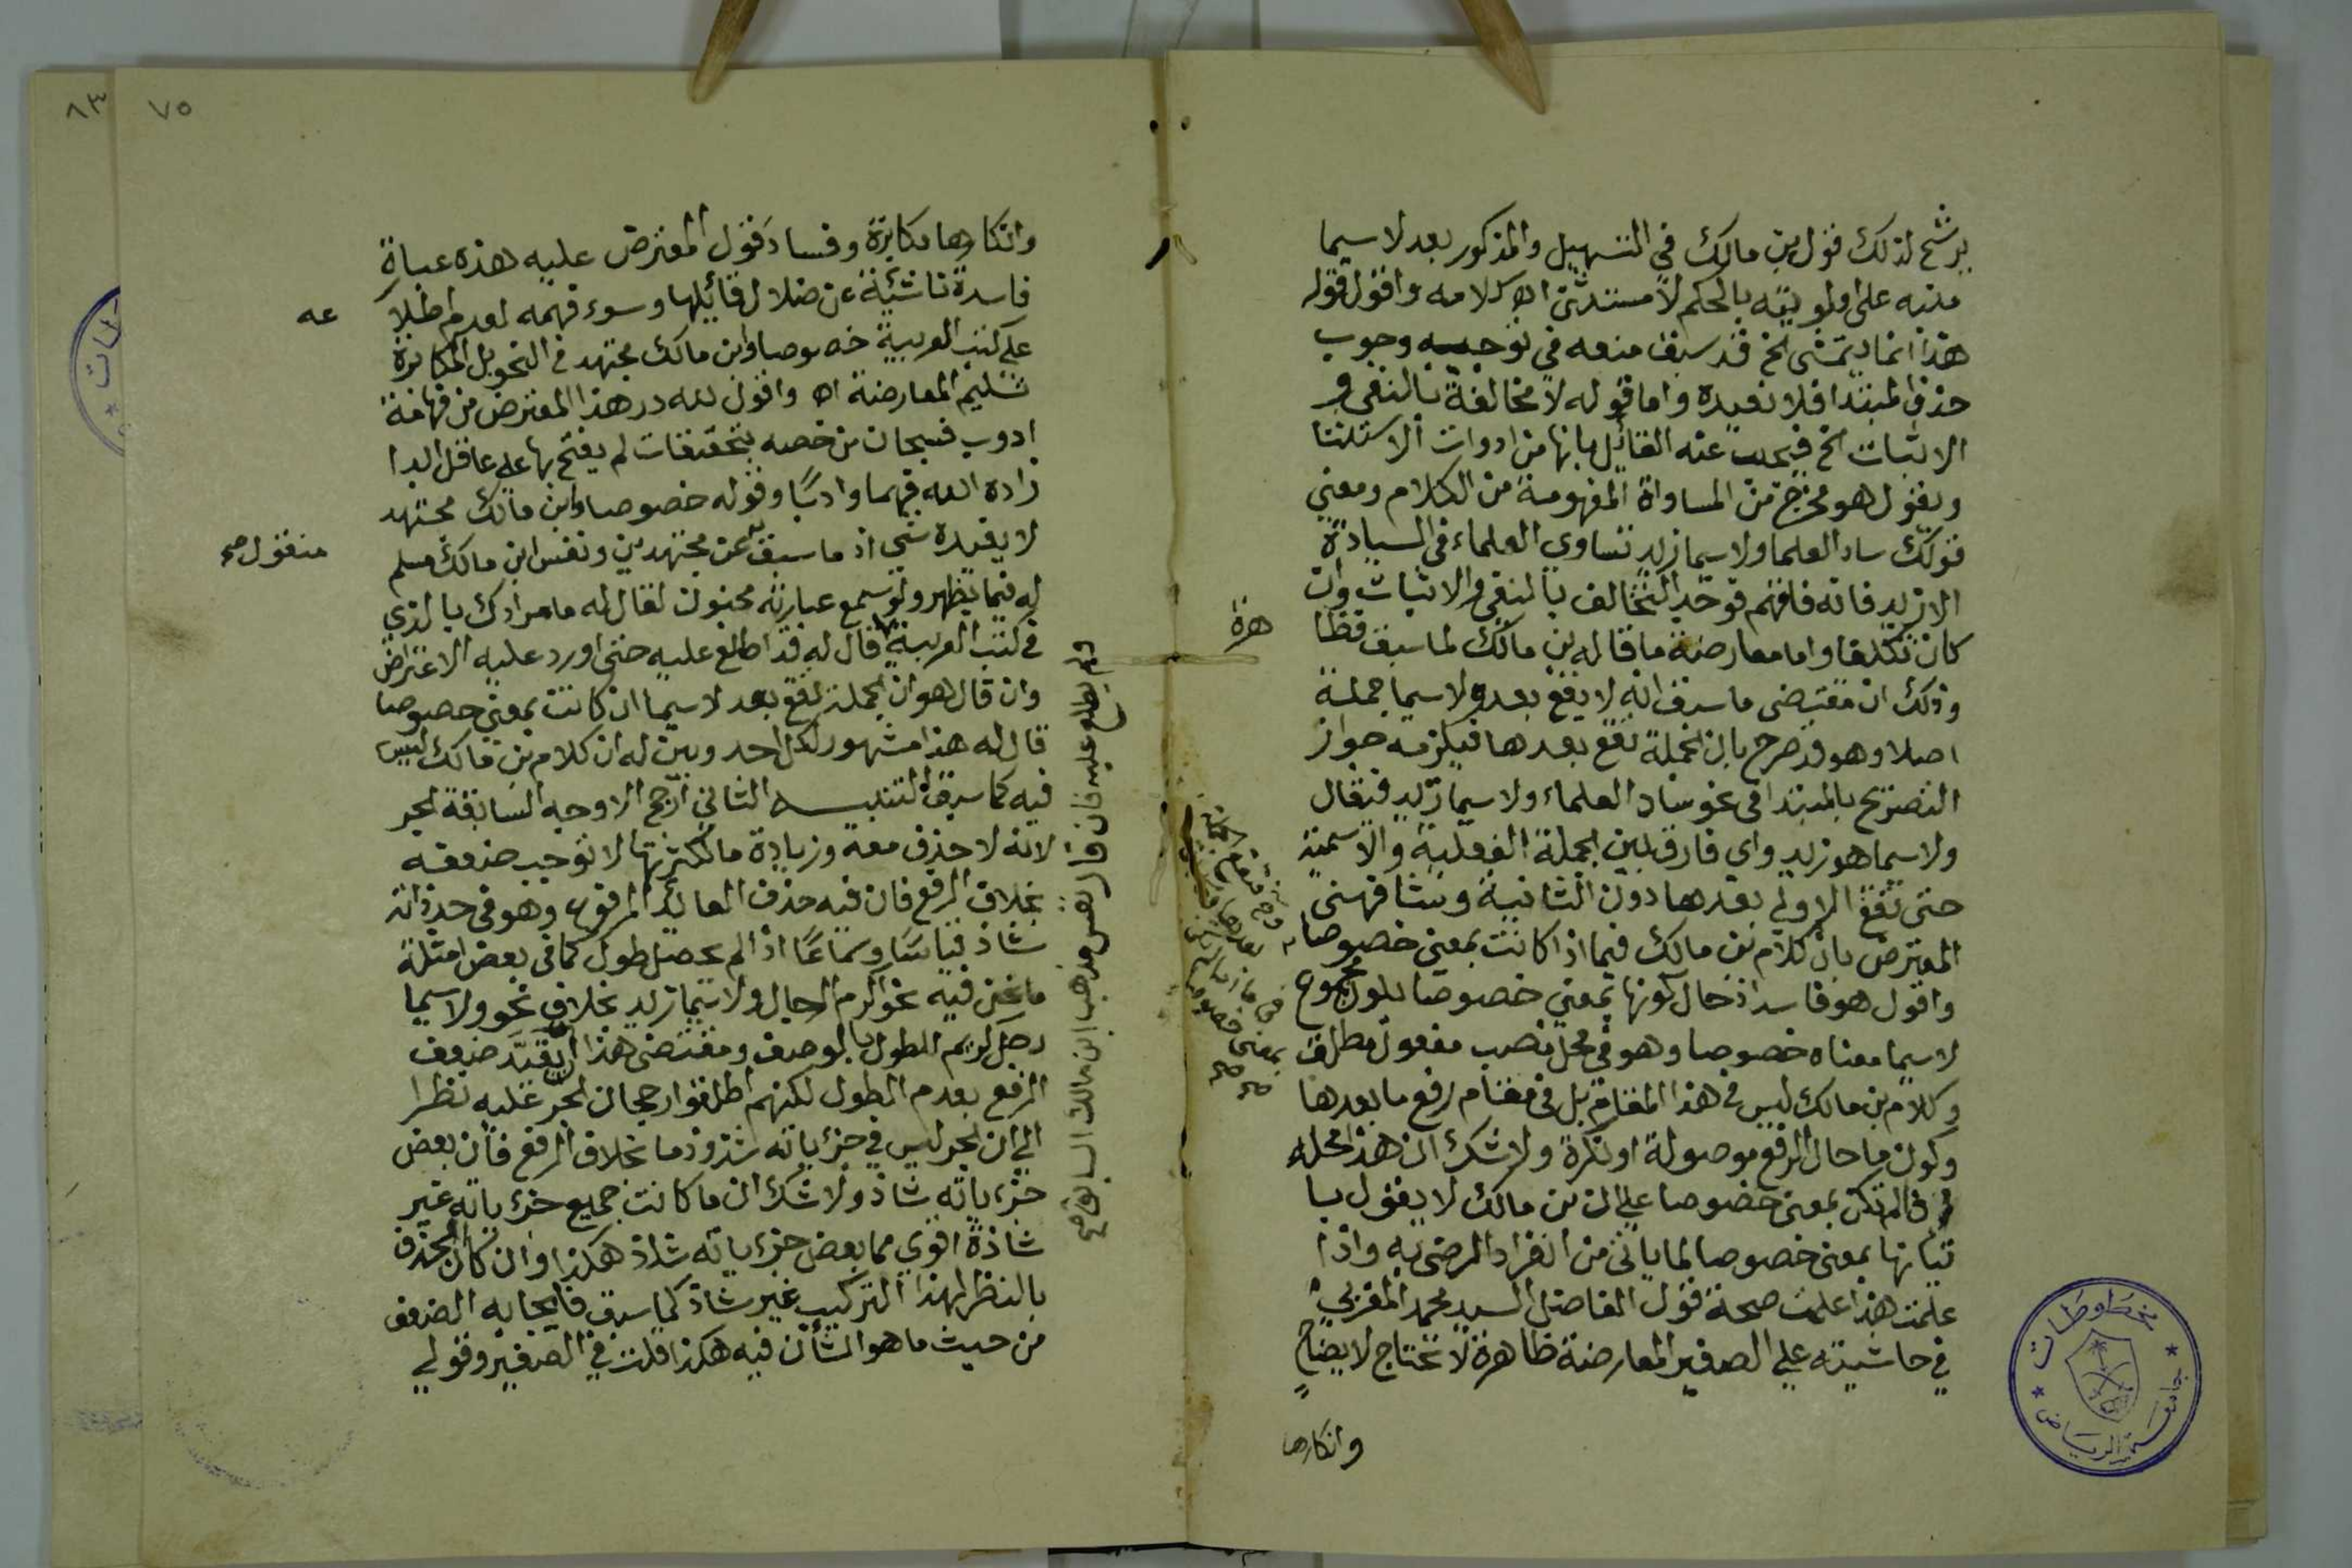 يرشح لذلك قول بن مالك في التسهيل والمذكور بعد لاسيما
منبه على اولويته بالحكم لا مستثنى اه كلامه واقول قوله
هذا انما يتمشى الخ قد سبق منعه في توجيه وجوب
حذف المبتدا فلا نعيده واما قوله لا مخالفة بالنفي و
الاثبات الخ فيجيب عنه القائل بانها من ادوات الاستثنا
ويقول هو مخرج من المساواة المفهومة من الكلام ومعنى
قولك ساد العلما ولاسيما زيد تساوي العلماء في السيادة
الا زيد فانه فاقهم فوجد التخالف بالنفي والاثبات وان
كان تكلفا واما معارضة ما قاله بن مالك لما سبق فظا
هرة
وذلك ان مقتضى ما سبق انه لا يقع بعد ولاسيما جملة
اصلا وهو قد صرح بان الجملة تقع بعدها فيلزمه جواز
التصريح بالمبتدا في نحو ساد العلماء ولاسيما زيد فيقال
ولاسيما هو زيد واي فارق بين الجملة الفعلية والاسمية
حتى تقع الاولى بعدها دون الثانية
المعترض بان كلام بن مالك فيما اذا كانت بمعنى خصوصا
واقول هو فاسد اذ حال كونها بمعنى خصوصا يكون مجموع
لاسيما معناه خصوصا وهو في محل نصب مفعول مطلق
وكلام بن مالك ليس في هذا المقام بل في مقام رفع ما بعدها
وكون ما حال الرفع موصولة او نكرة ولا شك ان هذا محله
بمعنى خصوصا على ان بن مالك لا يقول با
تيانها بمعنى خصوصا لما ياتي من انفراد الرضي به واذا
علمت هذا علمت صحة قول الفاضل السيد محمد المغربي
في حاشيته على الصغير المعارضة ظاهرة لا تحتاج لايضاح
وانكارها
مخطوطات
جامعة الرياض
٧٥
٨٣
وانكارها مكابرة وفساد قول المعترض عليه هذه عبارة
فاسدة ناشئة عن ضلال قائلها وسوء فهمه لعدم اطلا
عه
على كتب العربية خصوصا وابن مالك مجتهد في النحو بل المكابرة
تسليم المعارضة اه واقول لله در هذا المعترض من فهامة
ادوب فسبحان من خصه بتحقيقات لم يفتح بها على عاقل ابدا
زاده الله فهما وادبا وقوله خصوصا وابن مالك مجتهد
لا يفيده شي اذ ما سبق عن مجتهدين ونفس ابن مالك مسلم
منقول صح
له فيما يظهر ولو سمع عبارته مجنون لقال له ما مرادك بالذي
في كتب العربية قال له قد اطلع عليه حتى اورد عليه الاعتراض
ولم يطلع عليه فان قال هو مذهب ابن مالك السابق صح
وان قال هو ان الجملة تقع بعد لاسيما ان كانت بمعنى خصوصا
قال له هذا مشهور لكل احد وبين له ان كلام بن مالك ليس
فيه كما سبق التنبيه الثاني ارجح الاوجه السابقة الجر
لانه لا حذف معه وزيادة ما لكثرتها لا توجب ضعفه
بخلاف الرفع فان فيه حذف العائد المرفوع وهو في حد ذاته
شاذ قياسا وسماعا اذا لم يحصل طول كما في بعض امثلة
ما نحن فيه نحو اكرم الرجال ولاسيما زيد بخلاف نحو ولاسيما
رجل كريم للطول بالوصف ومقتضى هذا ان يقيد ضعف
الرفع بعدم الطول لكنهم اطلقوا رجحان الجر عليه نظرا
الى ان الجر ليس في جزءياته شذوذ ما بخلاف الرفع فان بعض
جزءياته شاذ ولا شك ان ما كانت جميع جزءياته غير
شاذة اقوى مما بعض جزءياته شاذ هكذا وان كان الحذف
بالنظر لهذا التركيب غير شاذ كما سبق فايجابه الضعف
من حيث ما هو الشان فيه هكذا قلت في الصغير وقولي